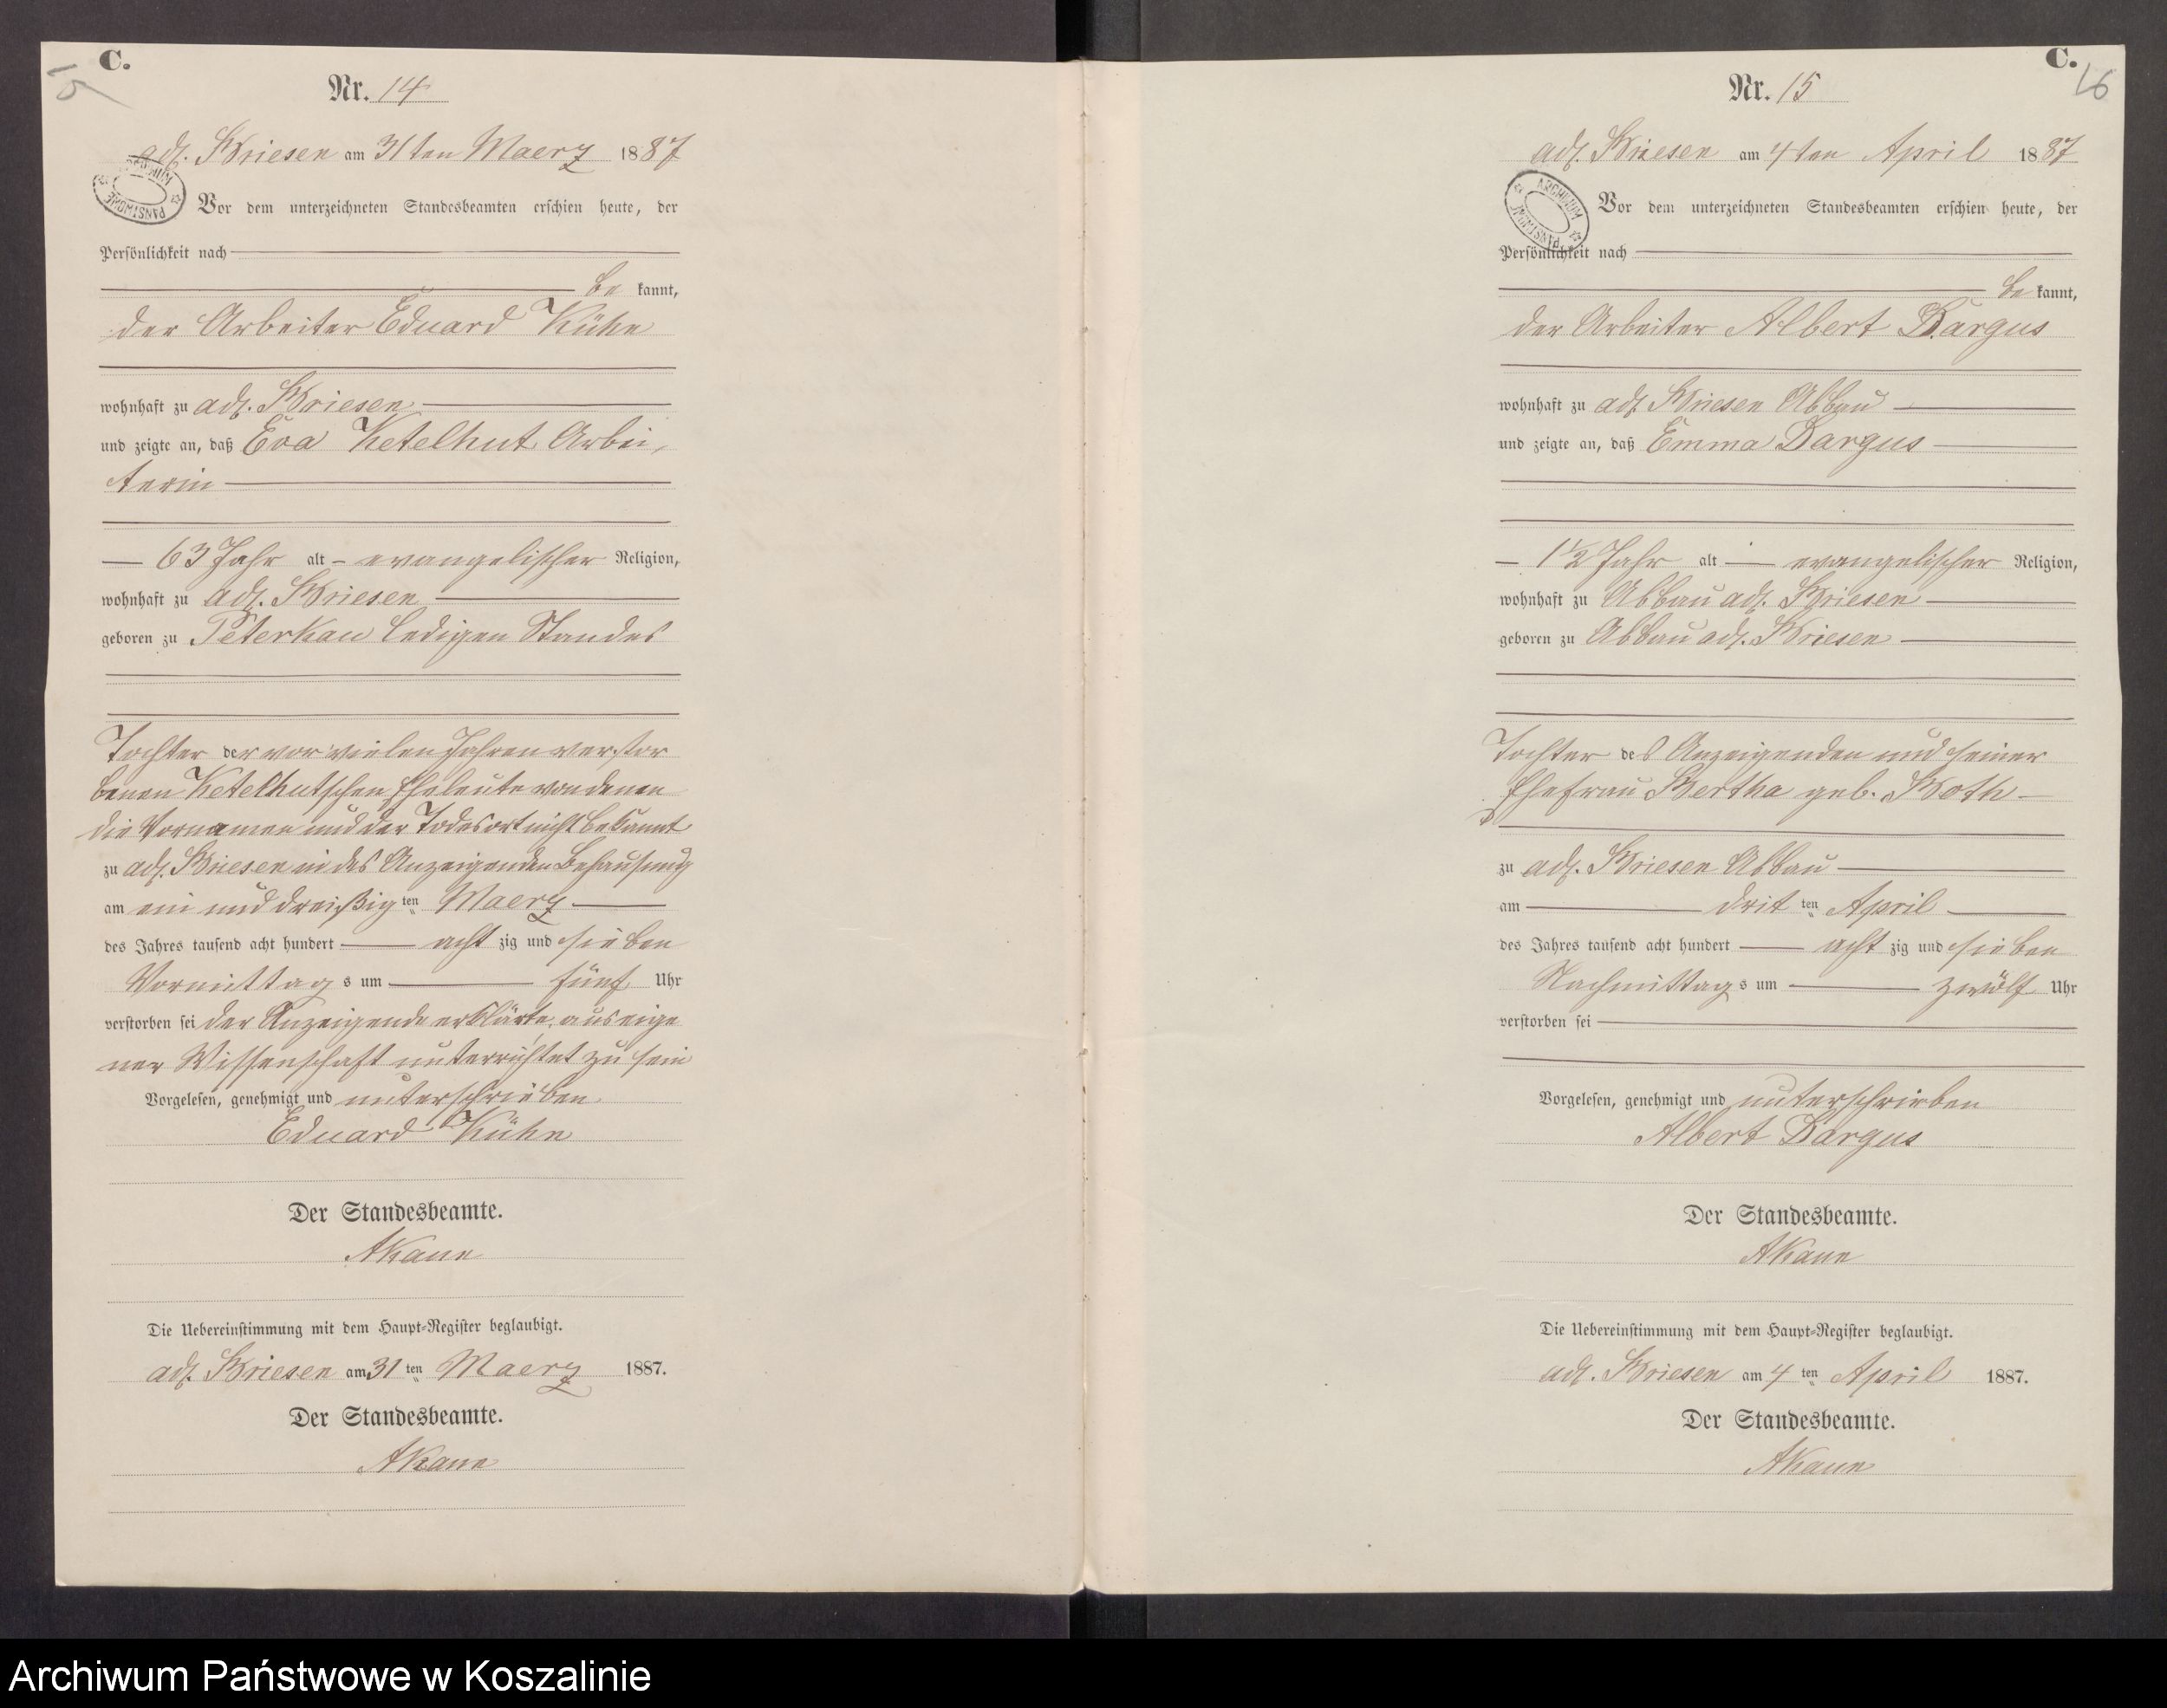 C.
15
Nr. 14
adl. Briesen am 31ten Maerz 1887
ARCHIWUM PAŃSTWOWE
Vor dem unterzeichneten Standesbeamten erschien heute, der
Persönlichkeit nach
be kannt,
der Arbeiter Eduard Kühn
wohnhaft zu adl. Briesen
und zeigte an, daß Eva Ketelhut Arbei-
terin
63 Jahr alt evangelischer Religion,
wohnhaft zu adl. Briesen
geboren zu Peterkau ledigen Standes
Tochter der vor vielen Jahren verstor
benen Ketelhutschen Eheleute von denen
die Vornamen und der Todesort nicht bekannt
zu adl. Briesen in des Anzeigenden Behausung
am ein und dreißig ten Maerz
des Jahres tausend acht hundert acht zig und sieben
Vormittag s um fünf Uhr
verstorben sei der Anzeigende erklärte, aus eige
ner Wissenschaft unterrichtet zu sein
Vorgelesen, genehmigt und unterschrieben
Eduard Kühn
Der Standesbeamte.
AKaun
Die Uebereinstimmung mit dem Haupt-Register beglaubigt.
adl. Briesen am 31 ten Maerz 1887.
Der Standesbeamte.
AKaun
C.
16
Nr. 15
adl. Briesen am 4ten April 1887
ARCHIWUM PAŃSTWOWE
Vor dem unterzeichneten Standesbeamten erschien heute, der
Persönlichkeit nach
be kannt,
der Arbeiter Albert Dargus
wohnhaft zu adl. Briesen Abbau
und zeigte an, daß Emma Dargus
1½ Jahr alt evangelischer Religion,
wohnhaft zu Abbau adl. Briesen
geboren zu Abbau adl. Briesen
Tochter des Anzeigenden und seiner
Ehefrau Bertha geb. Roth
zu adl. Briesen Abbau
am drit ten April
des Jahres tausend acht hundert acht zig und sieben
Nachmittag s um zwölf Uhr
verstorben sei
Vorgelesen, genehmigt und unterschrieben
Albert Dargus
Der Standesbeamte.
AKaun
Die Uebereinstimmung mit dem Haupt-Register beglaubigt.
adl. Briesen am 4 ten April 1887.
Der Standesbeamte.
AKaun
Archiwum Państwowe w Koszalinie